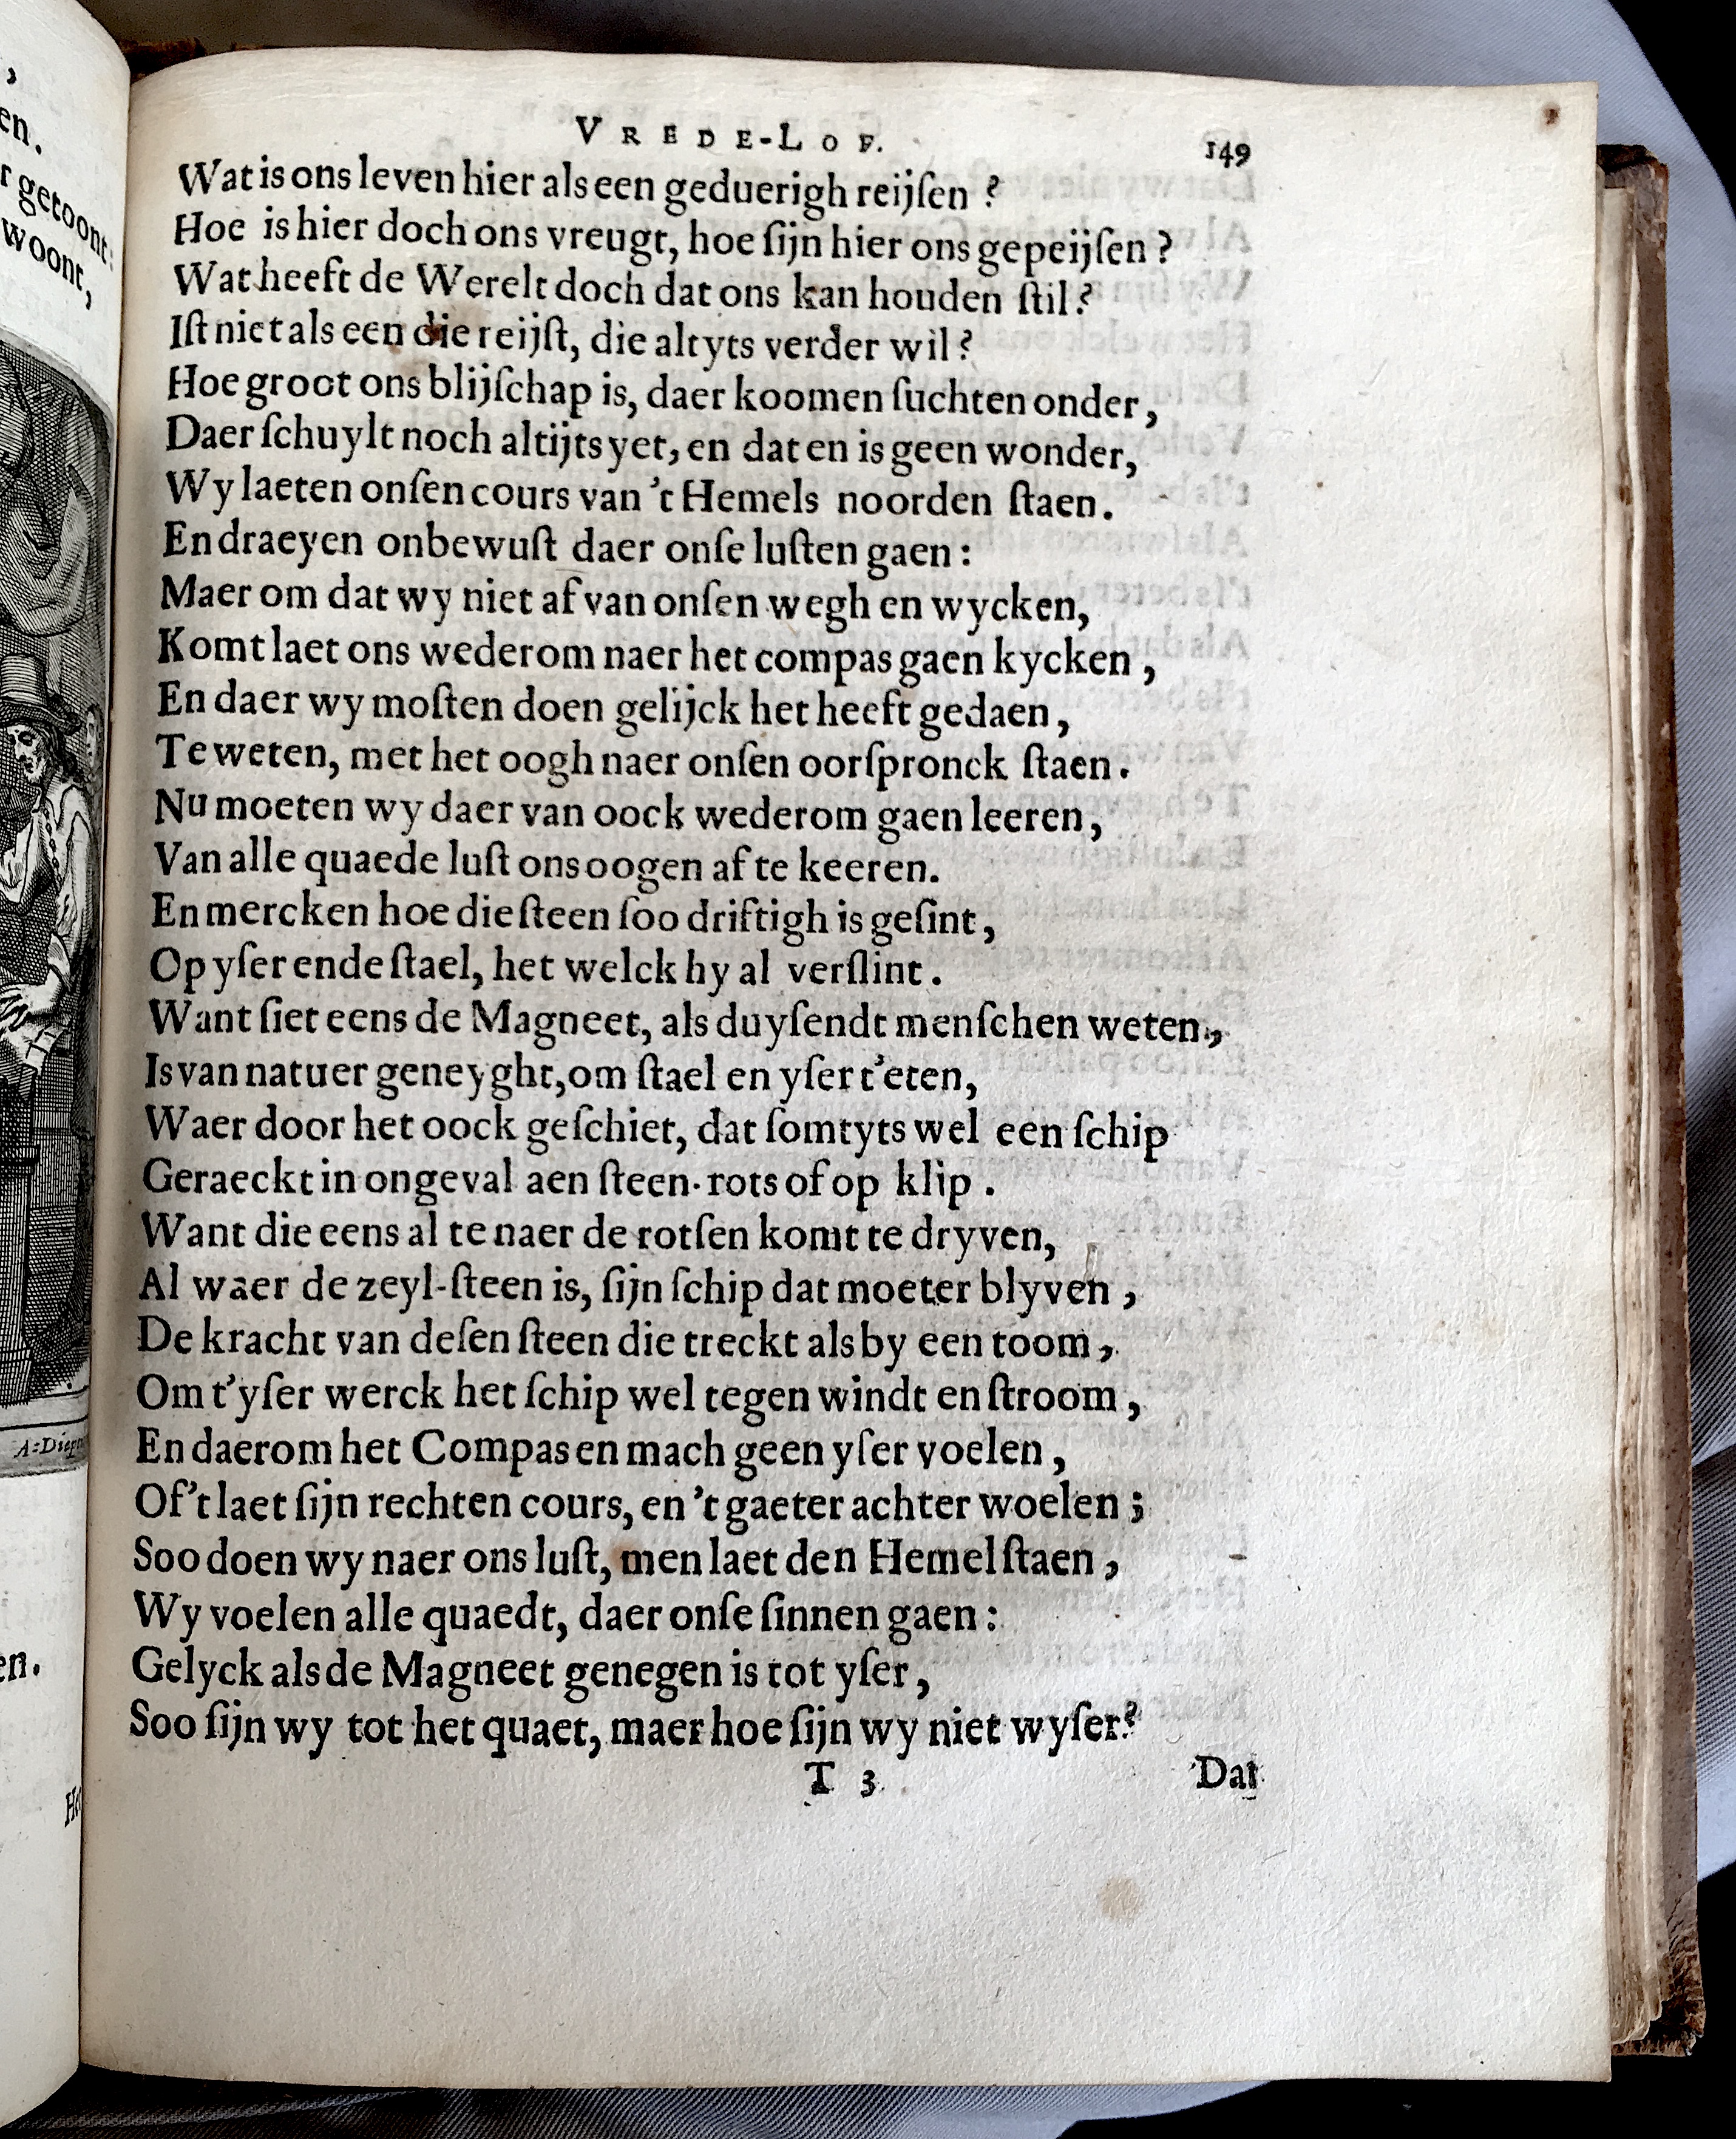 ,
en.
r getoont:
woont,
A: Diep
en.
VREDE-LOF. 149
Wat is ons leven hier als een geduerigh reijſen ?
Hoe is hier doch ons vreugt, hoe ſijn hier ons gepeijſen ?
Wat heeft de Werelt doch dat ons kan houden ſtil ?
Iſt niet als een die reijſt, die altyts verder wil ?
Hoe groot ons blijſchap is, daer koomen ſuchten onder,
Daer ſchuylt noch altijts yet, en dat en is geen wonder,
Wy laeten onſen cours van 't Hemels noorden ſtaen.
En draeyen onbewuſt daer onſe luſten gaen :
Maer om dat wy niet af van onſen wegh en wycken,
Komt laet ons wederom naer het compas gaen kycken,
En daer wy moſten doen gelijck het heeft gedaen,
Te weten, met het oogh naer onſen oorſpronck ſtaen.
Nu moeten wy daer van oock wederom gaen leeren,
Van alle quaede luſt ons oogen af te keeren.
En mercken hoe die ſteen ſoo driftigh is geſint,
Op yſer ende ſtael, het welck hy al verſlint.
Want ſiet eens de Magneet, als duyſendt menſchen weten,
Is van natuer geneyght, om ſtael en yſer t'eten,
Waer door het oock geſchiet, dat ſomtyts wel een ſchip
Geraeckt in ongeval aen ſteen-rots of op klip.
Want die eens al te naer de rotſen komt te dryven,
Al waer de zeyl-ſteen is, ſijn ſchip dat moeter blyven,
De kracht van deſen ſteen die treckt als by een toom,
Om t'yſer werck het ſchip wel tegen windt en ſtroom,
En daerom het Compas en mach geen yſer voelen,
Of 't laet ſijn rechten cours, en 't gaeter achter woelen ;
Soo doen wy naer ons luſt, men laet den Hemel ſtaen,
Wy voelen alle quaedt, daer onſe ſinnen gaen :
Gelyck als de Magneet genegen is tot yſer,
Soo ſijn wy tot het quaet, maer hoe ſijn wy niet wyſer?
T 3 Dat